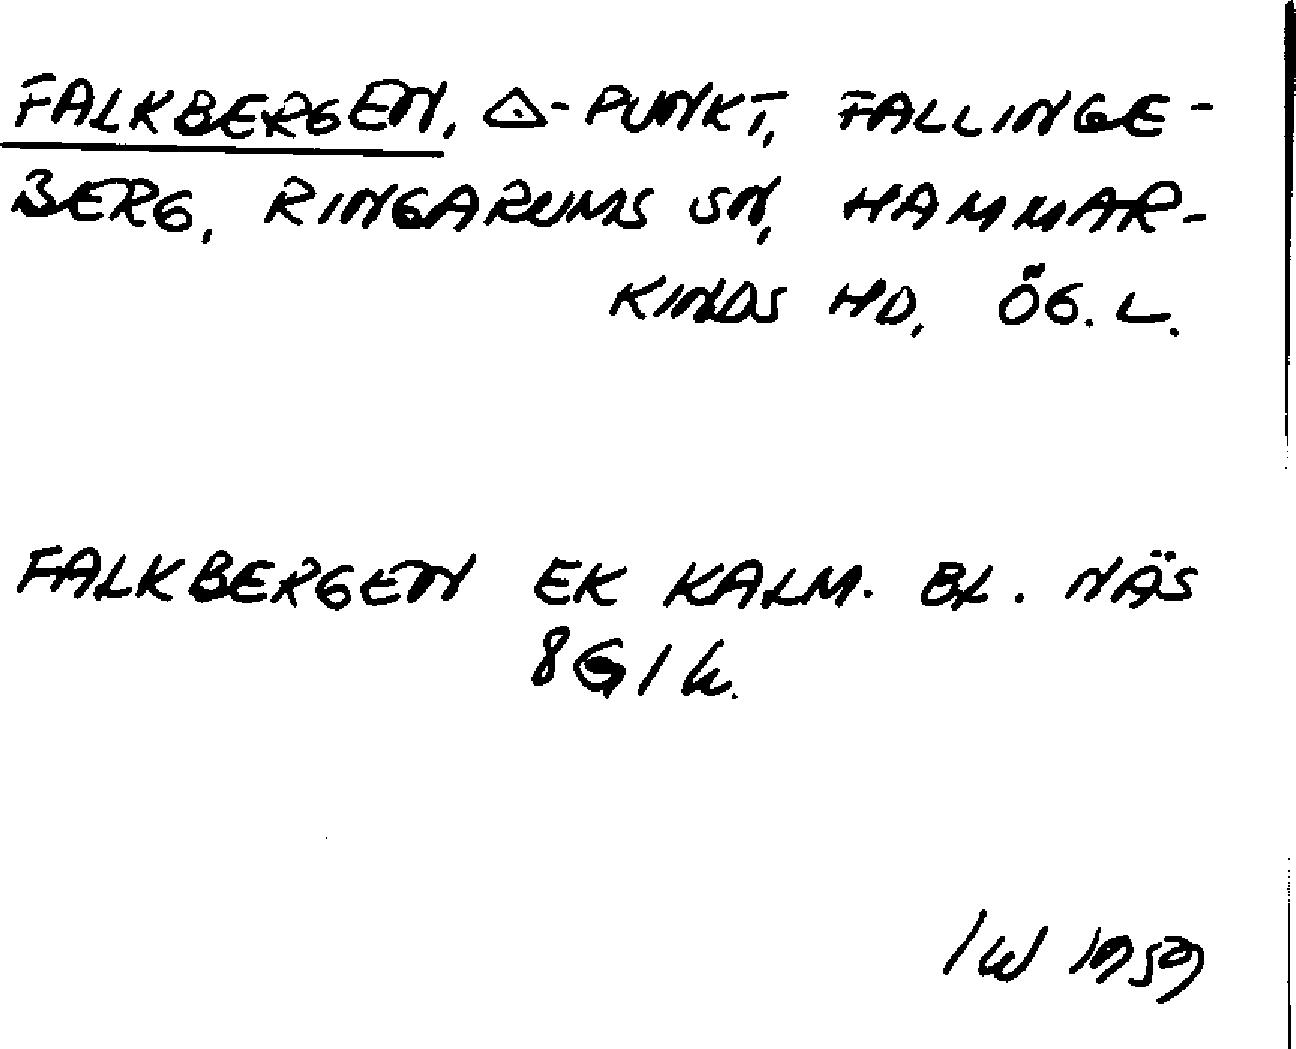 FALKBERGEN, △-PUNKT, FALLINGE-
BERG, RINGARUMS SN, HAMMAR-
KINDS HD, ÖG. L.
FALKBERGEN EK KALM. BL. NÄS
8G1k.
IW 1959